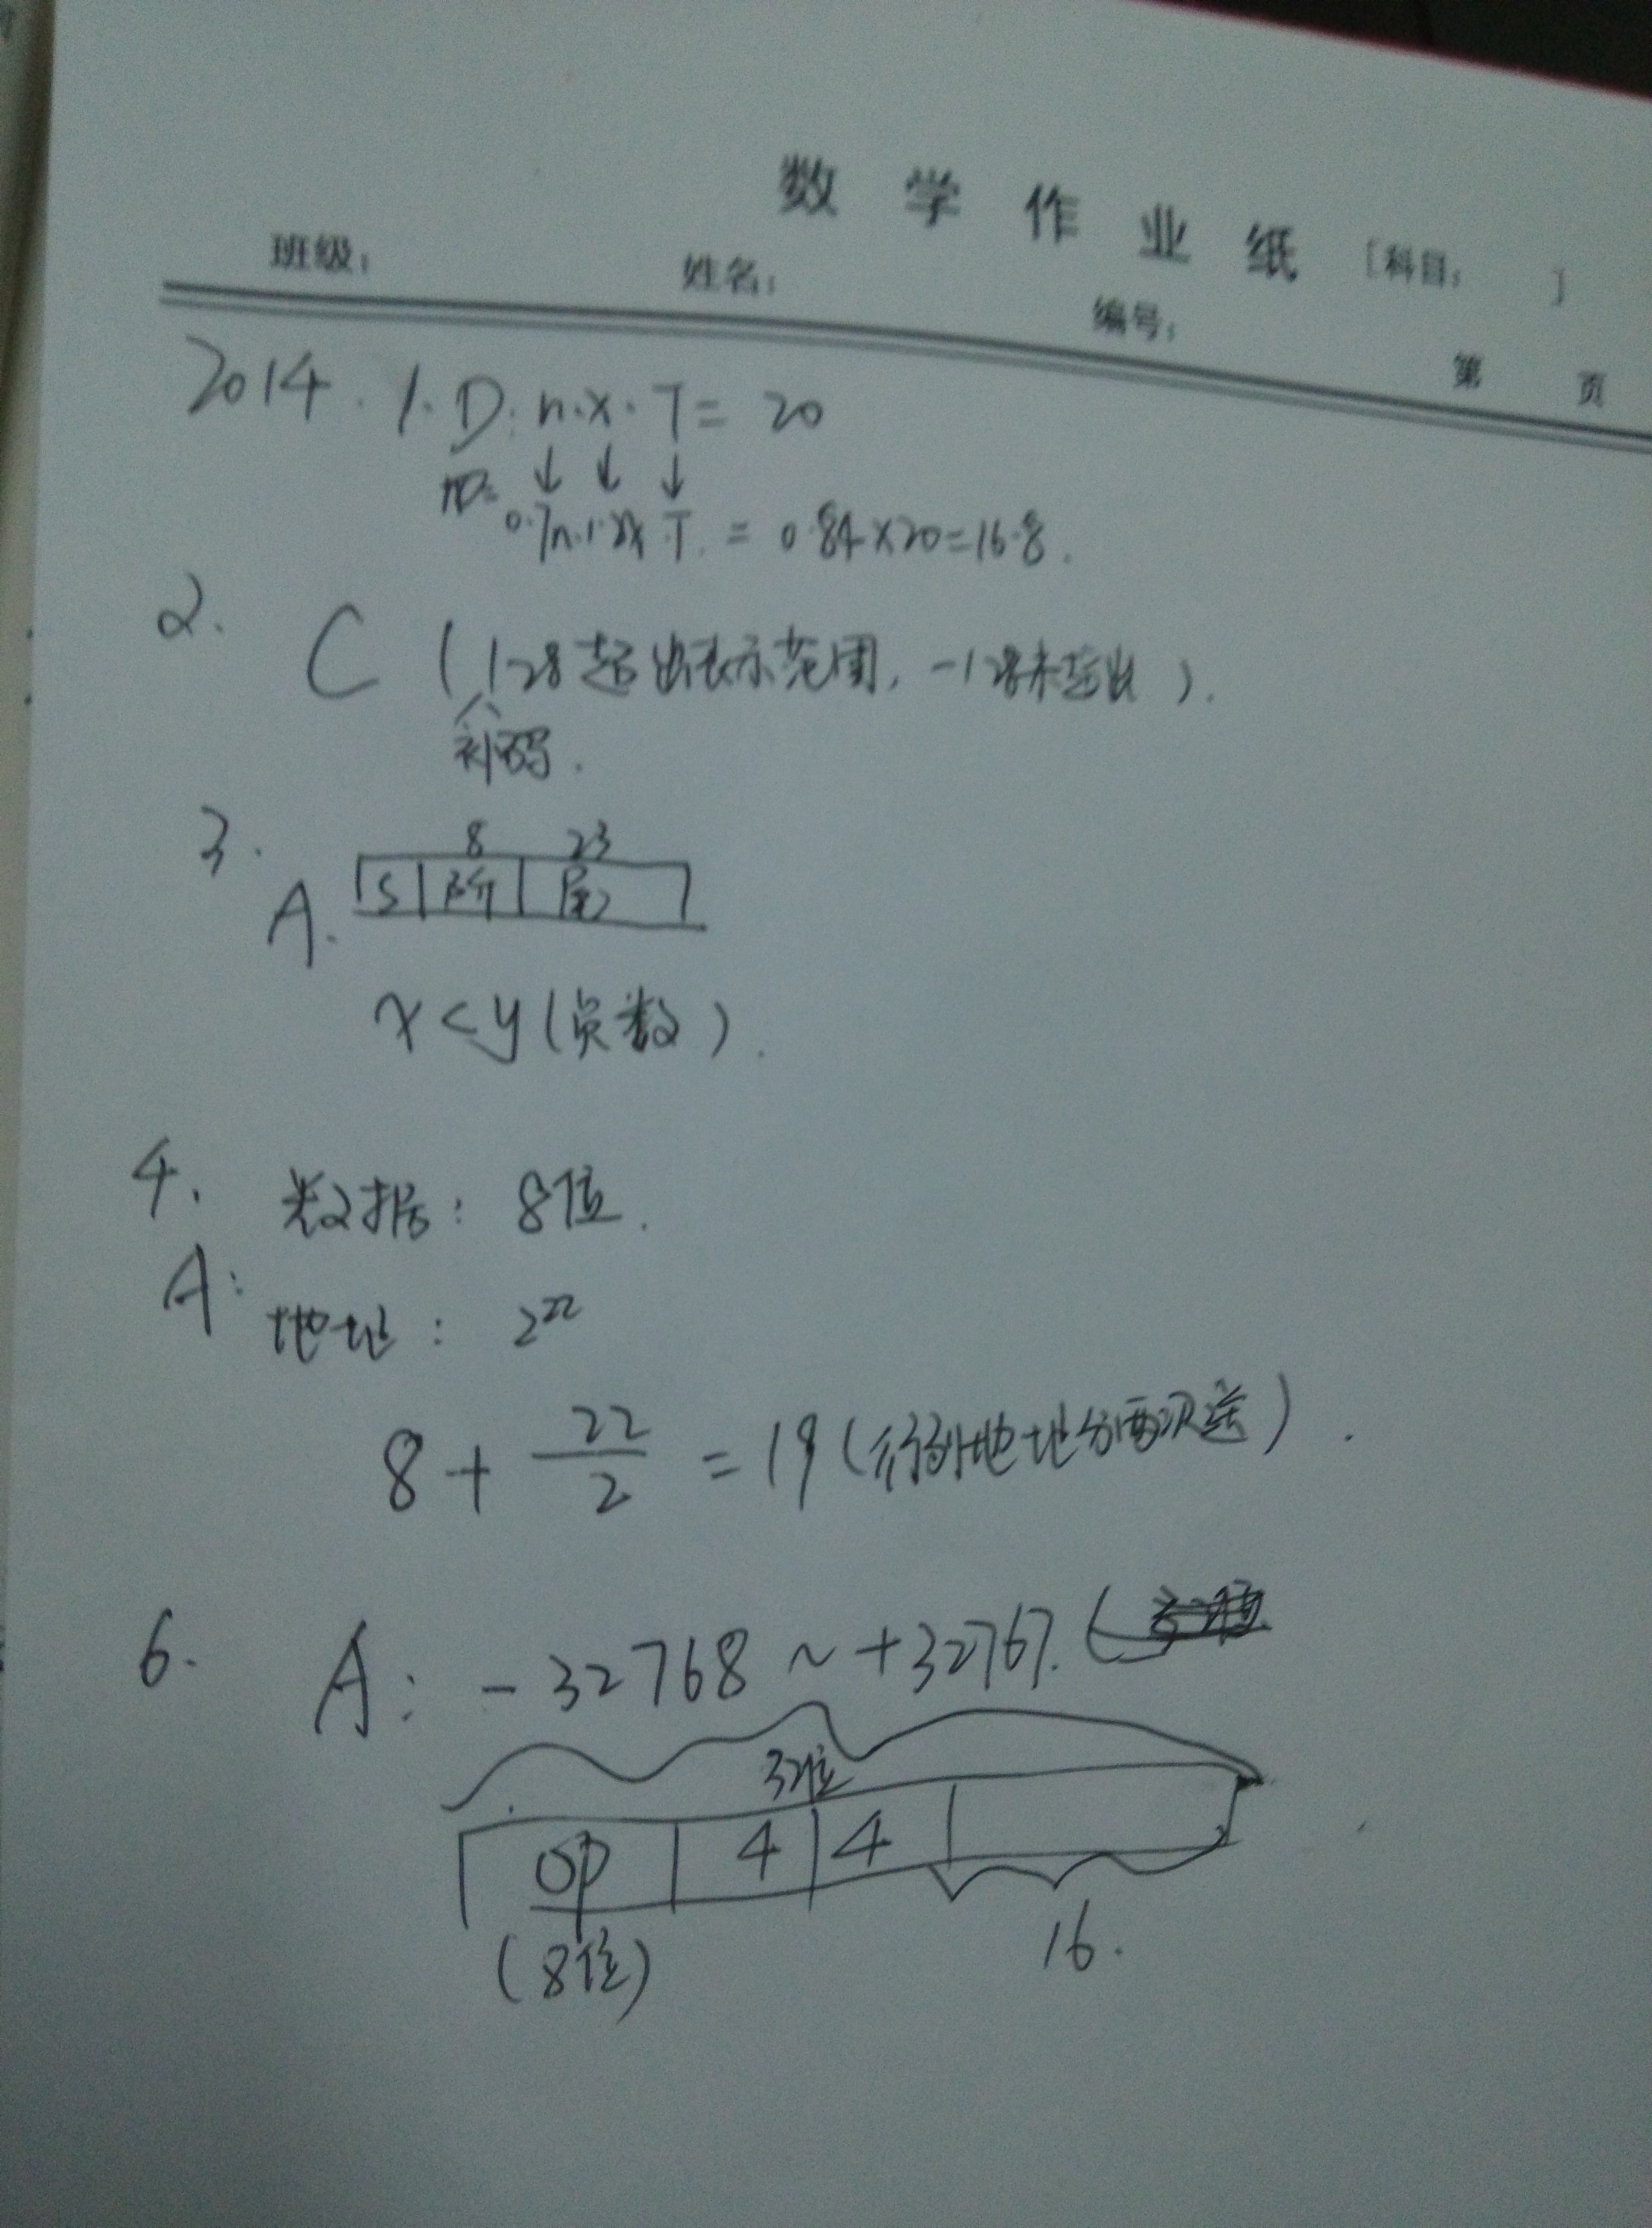 数学作业纸 [科目: ]
班级: 姓名: 编号: 第 页
2014. 1. D: n·x·T = 20
↓ ↓ ↓
0.7n·1.2x·T. = 0.84×20=16.8.
2. C (128超出表示范围, -128未超出).
补码.
3. 8 23
A. S 阶 尾
x<y(负数).
4. 数据: 8位.
A: 地址: 2^22
8 + 22/2 = 19 (行列地址分两次送).
6. A: -32768 ~ +32767. (
32位
OP 4 4
(8位) 16.